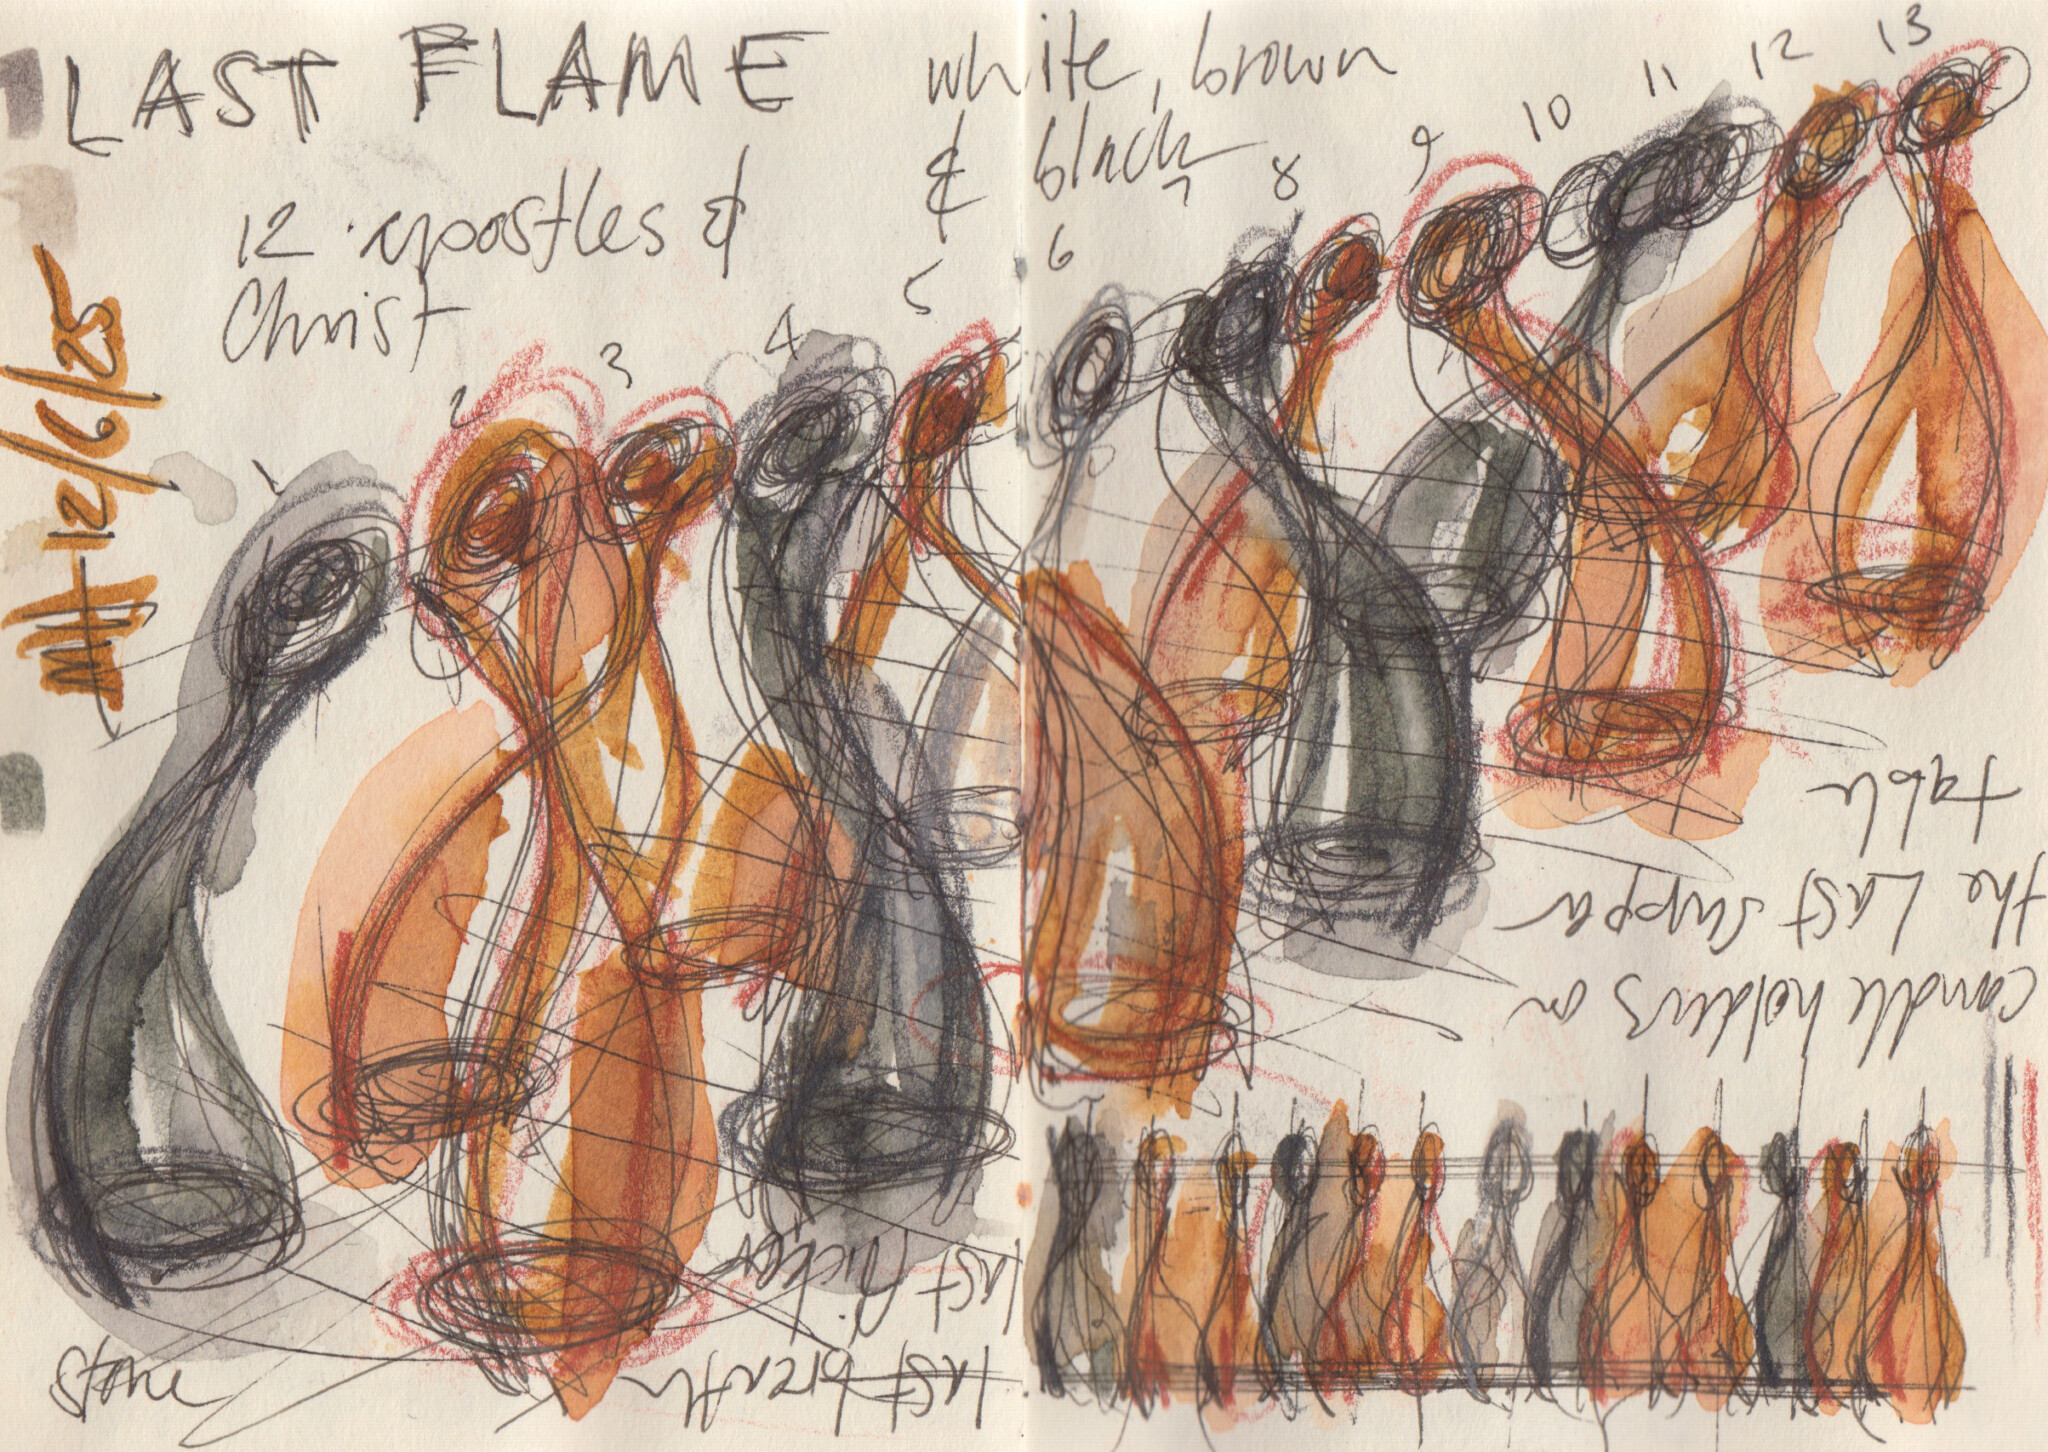 LAST FLAME
white, brown
& black
12 apostles &
Christ
1 2 3 4 5 6 7 8 9 10 11 12 13
12/6/25
candle holders on
the Last Supper
table
last breath
last flicker
stone